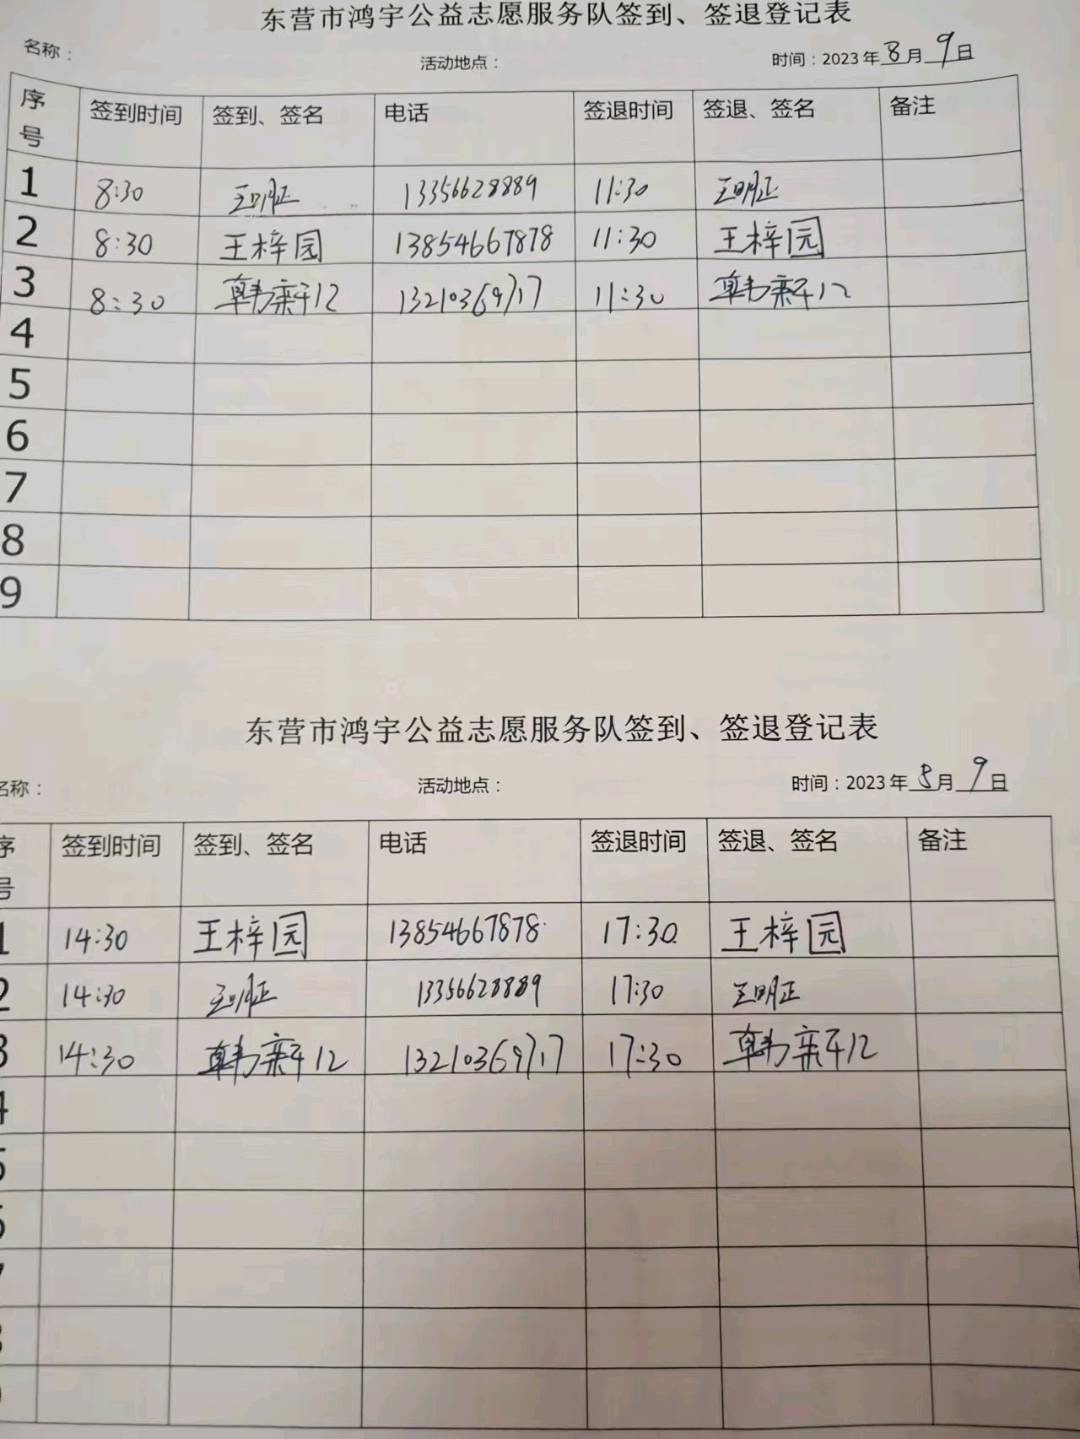 东营市鸿宇公益志愿服务队签到、签退登记表
名称： 活动地点： 时间：2023年8月9日
序号 签到时间 签到、签名 电话 签退时间 签退、签名 备注
1 8:30 王明正 13356628889 11:30 王明正
2 8:30 王梓园 13854667878 11:30 王梓园
3 8:30 韩 13210369717 11:30 韩
4
5
6
7
8
9
东营市鸿宇公益志愿服务队签到、签退登记表
名称： 活动地点： 时间：2023年8月9日
序号 签到时间 签到、签名 电话 签退时间 签退、签名 备注
1 14:30 王梓园 13854667878 17:30 王梓园
2 14:30 王明正 13356628889 17:30 王明正
3 14:30 韩 13210369717 17:30 韩
4
5
6
7
8